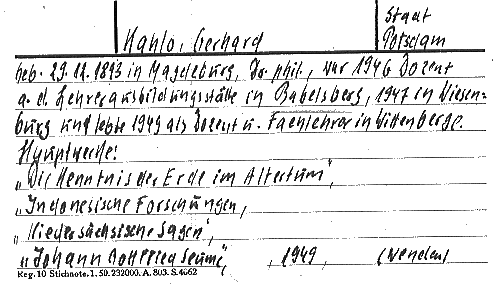 Kahlo, Gerhard
Staat
Potsdam
geb. 29.12.1893 in Magdeburg, Dr. phil., war 1946 Dozent
a. d. Lehrerausbildungsstätte in Babelsberg, 1947 in Wiesen-
burg und lebte 1949 als Dozent u. Fachlehrer in Wittenberge.
Hauptwerke:
„Die Kenntnis der Erde im Altertum",
„Indonesische Forschungen,
„Niedersächsische Sagen",
„Johann Gottfried Seume", , 1949, (Wenden)
Reg. 10 Stichnote. 1. 50. 232000. A. 803. S. 4662